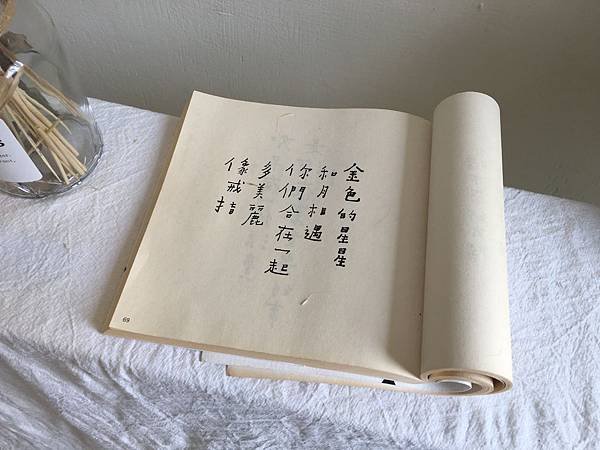 金色的星星
和月相遇
你們合在一起
多美麗
像戒指
69